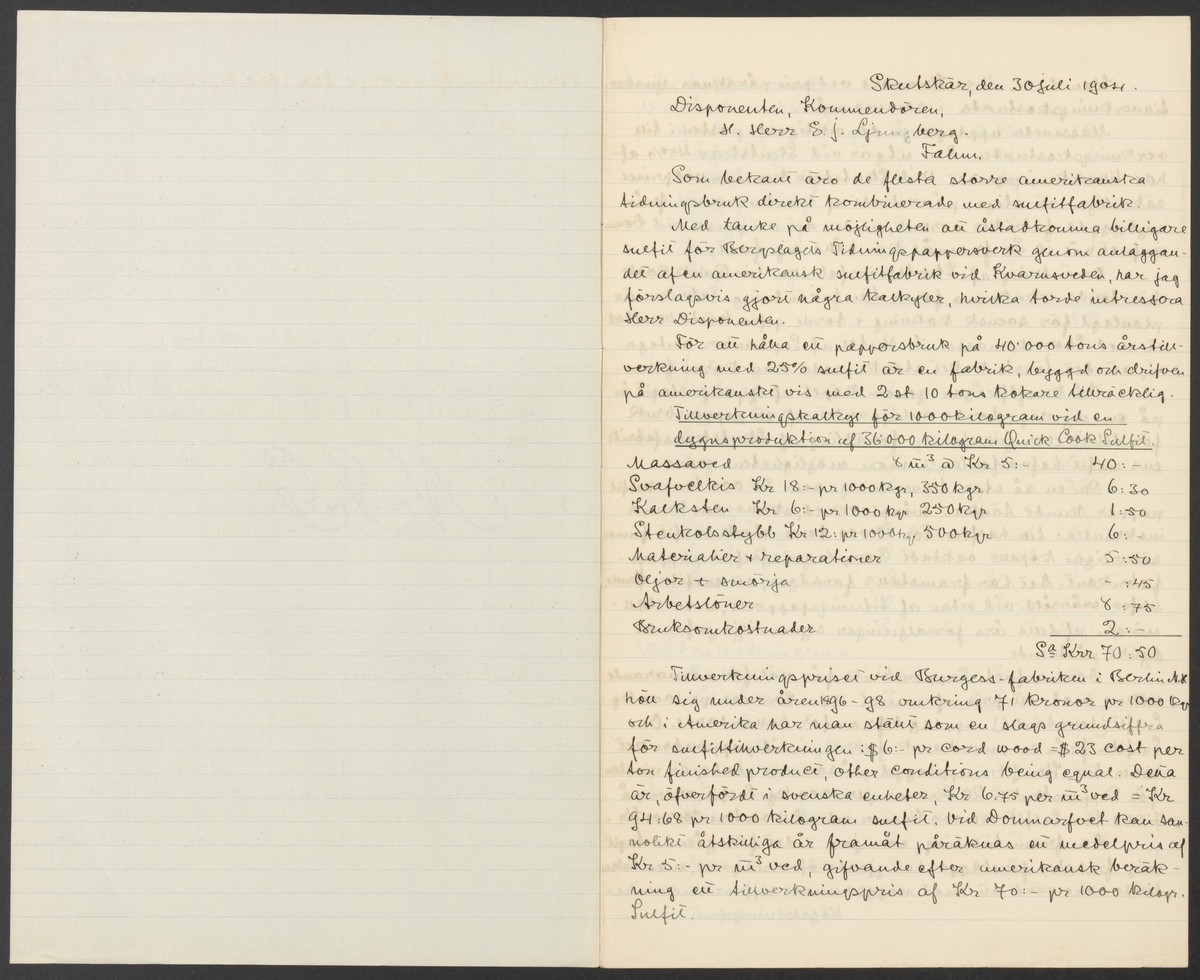 Skutskär, den 30 juli 1901.
Disponenten, Kommendören,
H. Herr E. J. Ljungberg.
Falun.
Som bekant äro de flesta större amerikanska
tidningsbruk direkt kombinerade med sulfitfabrik.
Med tanke på möjligheten att åstadkomma billigare
sulfit för Bergslagets Tidningspappersverk genom anläggan-
det af en amerikansk sulfitfabrik vid Kvarnsveden, har jag
förslagsvis gjort några kalkyler, hvilka torde intressera
Herr Disponenten.
För att hålla ett pappersbruk på 40·000 tons årstill-
verkning med 25% sulfit är en fabrik, byggd och drifven
på amerikanskt vis med 2 st 10 tons kokare tillräcklig.
Tillverkningskalkyl för 1000 kilogram vid en
dygnsproduktion af 36·000 kilogram Quick Cook Sulfit.
Massaved 8 m³ à Kr 5:- 40:-
Svafvelkis Kr 18:- pr 1000 kgr, 350 kgr 6:30
Kalksten Kr 6:- pr 1000 kgr 250 kgr 1:50
Stenkolsstybb Kr 12: pr 1000 kg 500 kgr 6:-
Materialier & reparationer 5:50
Oljor & smörja -:45
Arbetslöner 8:75
Bruksomkostnader 2:-
Sa Krr 70:50
Tillverkningspriset vid Burgess-fabriken i Berlin N.H.
höll sig under åren 1896-98 omkring 71 kronor pr 1000 kgr
och i Amerika har man ställt som en slags grundsiffra
för sulfittillverkningen: $6:- pr cord wood = $23 cost per
ton finished product, other conditions being equal. Detta
är, öfverfördt i svenska enheter, Kr 6.75 per m³ ved = Kr
94:68 pr 1000 kilogram sulfit. Vid Domnarfvet kan san-
nolikt åtskilliga år framåt påräknas ett medelpris af
Kr 5:- pr m³ ved, gifvande efter amerikansk beräk-
ning ett tillverkningspris af Kr 70:- pr 1000 kilogr.
Sulfit.